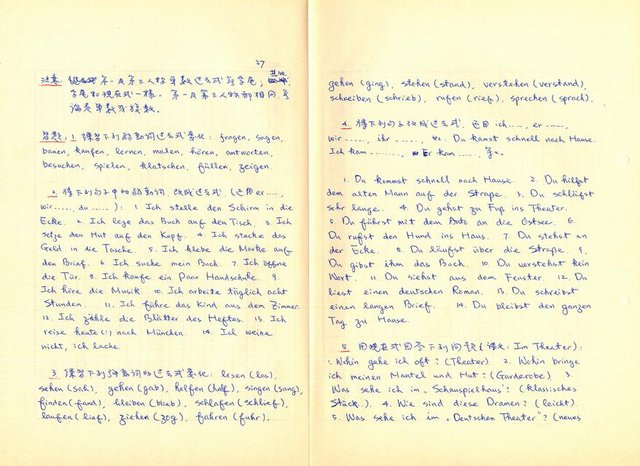 27
注意: 第一及第三人称单数过去式无字尾, 其他
字尾和现在式一样。第一及第三人称都相同, 不
论是单数或複数。
答题: 1 练习下列弱动词过去式变化: fragen, sagen,
bauen, kaufen, lernen, malen, hören, antworten,
besuchen, spielen, klatschen, füllen, zeigen.
2 将下列句子中的弱动词改成过去式 (也用er....,
wir...., du....): 1 Ich stelle den Schirm in die
Ecke. 2. Ich lege das Buch auf den Tisch. 3 Ich
setze den Hut auf den Kopf. 4. Ich stecke das
Geld in die Tasche. 5. Ich klebe die Marke auf
den Brief. 6 Ich suche mein Buch. 7. Ich öffne
die Tür. 8. Ich kaufe ein Paar Handschuhe. 9.
Ich höre die Musik. 10. Ich arbeite täglich acht
Stunden. 11. Ich führe das Kind aus dem Zimmer.
12. Ich zähle die Blätter des Heftes. 13 Ich
reise heute nach München. 14. Ich weine
nicht, ich lache.
3 练习下列强动词的过去式变化: lesen (las),
sehen (sah), geben (gab), helfen (half), singen (sang),
finden (fand), bleiben (blieb), schlafen (schlief),
laufen (lief), ziehen (zog), fahren (fuhr),
gehen (ging), stehen (stand), verstehen (verstand),
schreiben (schrieb), rufen (rief), sprechen (sprach).
4. 将下列句子改成过去式, 也用 ich...., er ....,
wir...., ihr ..... Du kamst schnell nach Hause.
Ich kam ......, Er kam ...., 等。
1. Du kommst schnell nach Hause. 2. Du hilfst
dem alten Mann auf der Straße. 3. Du schläfst
sehr lange. 4. Du gehst zu Fuß ins Theater.
5. Du fährst mit dem Auto an die Ostsee. 6
Du rufst den Hund ins Haus. 7 Du stehst an
der Ecke. 8 Du läufst über die Straße. 9.
Du gibst ihm das Buch. 10 Du verstehst kein
Wort. 11 Du siehst aus dem Fenster. 12. Du
liest einen deutschen Roman. 13. Du schreibst
einen langen Brief. 14. Du bleibst den ganzen
Tag zu Hause.
5 用现在式回答下列问题 (譯: Im Theater):
1. Wohin gehe ich oft? (Theater) 2. Wohin bringe
ich meinen Mantel und Hut? (Garderobe) 3.
Was sehe ich im „Schauspielhaus"? (klassisches
Stück). 4. Wie sind diese Dramen? (leicht).
5. Was sehe ich im „Deutschen Theater"? (neues